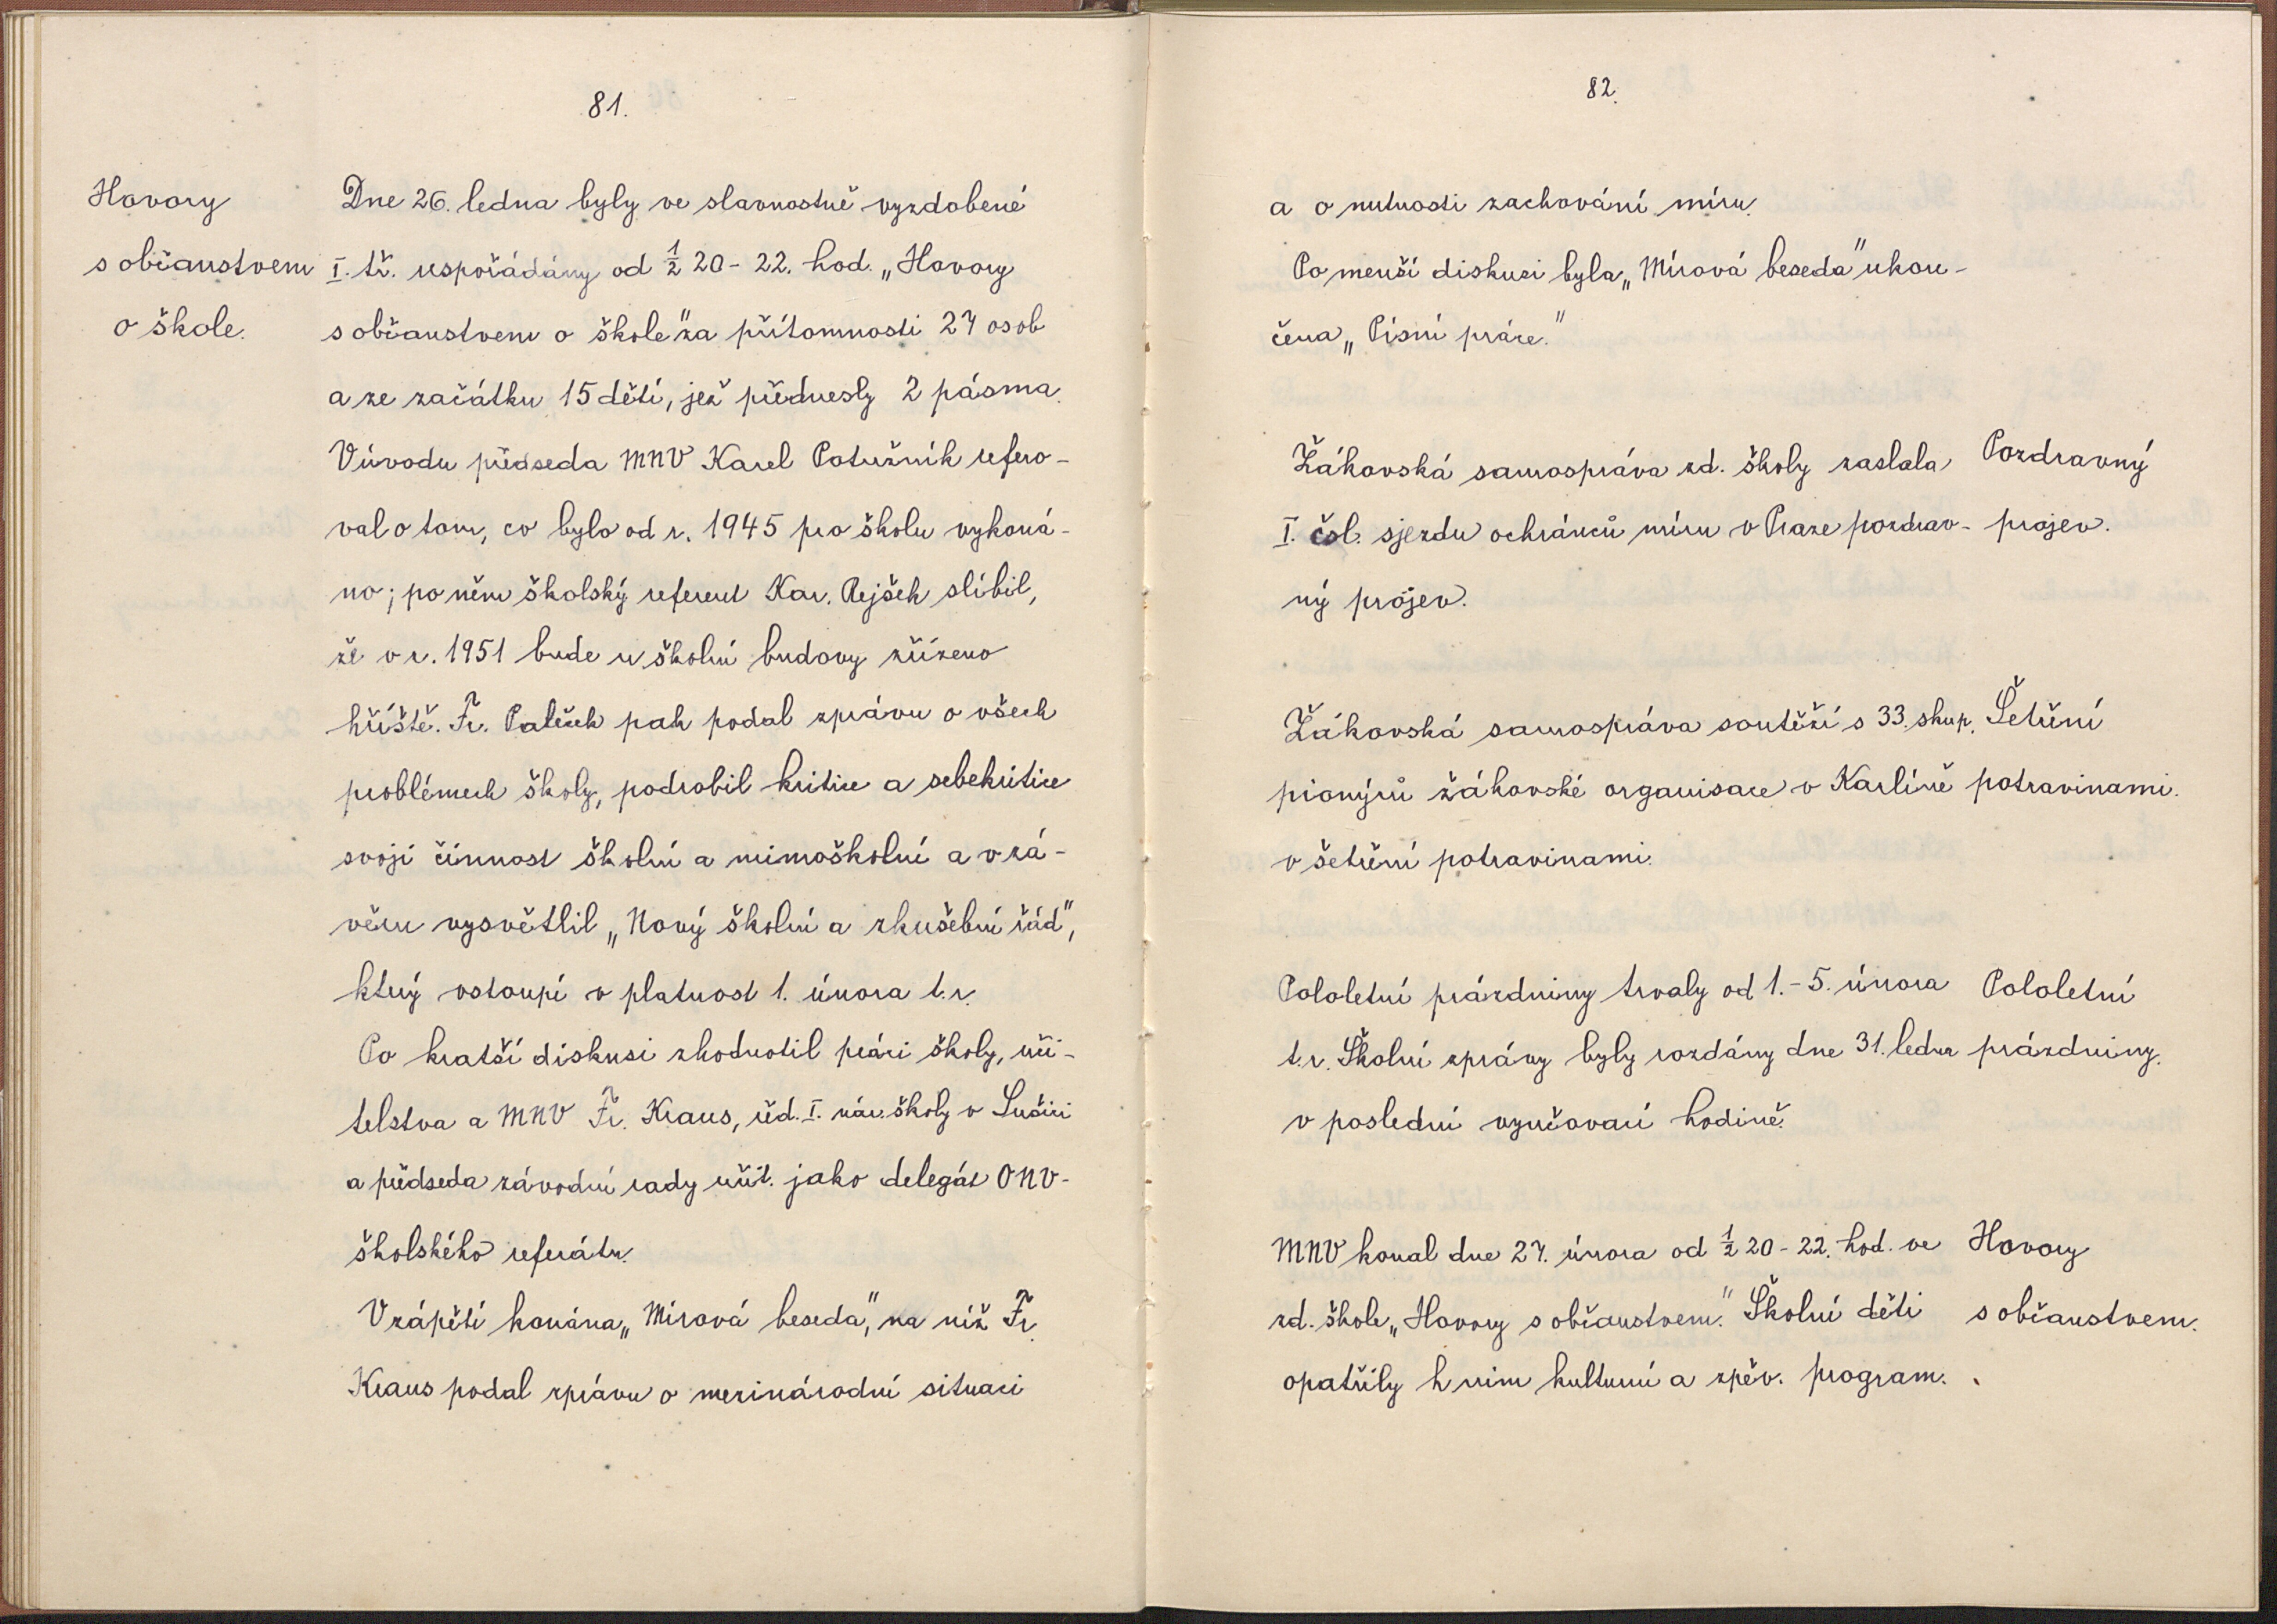 81.
Hovory
s občanstvem
o škole.
Dne 26. ledna byly ve slavnostně vyzdobené
I. tř. uspořádány od ½ 20 - 22. hod. „Hovory
s občanstvem o škole" za přítomnosti 27 osob
a ze začátku 15 dětí, jež přednesly 2 pásma.
Vúvodu předseda MNV Karel Potužník refero-
val o tom, co bylo od r. 1945 pro školu vykoná-
no; po něm školský referent Kar. Rejšek slíbil,
že v r. 1951 bude u školní budovy zřízeno
hřiště. Fr. Paleček pak podal zprávu o všech
problémech školy, podrobil kritice a sebekritice
svoji činnost školní a mimoškolní a v zá-
věru vysvětlil „Nový školní a zkušební řád",
který vstoupí v platnost 1. února t.r.
Po kratší diskusi zhodnotil práci školy, uči-
telstva a MNV Fr. Kraus, řed. I. nár. školy v
a předseda závodní rady učit. jako delegát ONV-
školského referátu.
Vzápětí konána „Mírová beseda", na níž Fr.
Kraus podal zprávu o mezinárodní situaci
82.
a o nutnosti zachování míru.
Po menší diskusi byla „Mírová beseda" ukon-
čena „Písní práce."
Žákovská samospráva zd. školy zaslala
I. čsl. sjezdu ochránců míru v Praze pozdrav-
ný projev.
Pozdravný
projev.
Žákovská samospráva soutěží s 33. skup.
pionýrů žákovské organisace v Karlíně
v šetření potravinami.
Šetření
potravinami.
Pololetní prázdniny trvaly od 1. - 5. února
t.r. Školní zprávy byly rozdány dne 31. ledna
v poslední vyučovací hodině.
Pololetní
prázdniny.
MNV konal dne 27. února od ½ 20 - 22. hod. ve
zd. škole „Hovory s občanstvem." Školní děti
opatřily k nim kulturní a zpěv. program.
Hovory
s občanstvem.